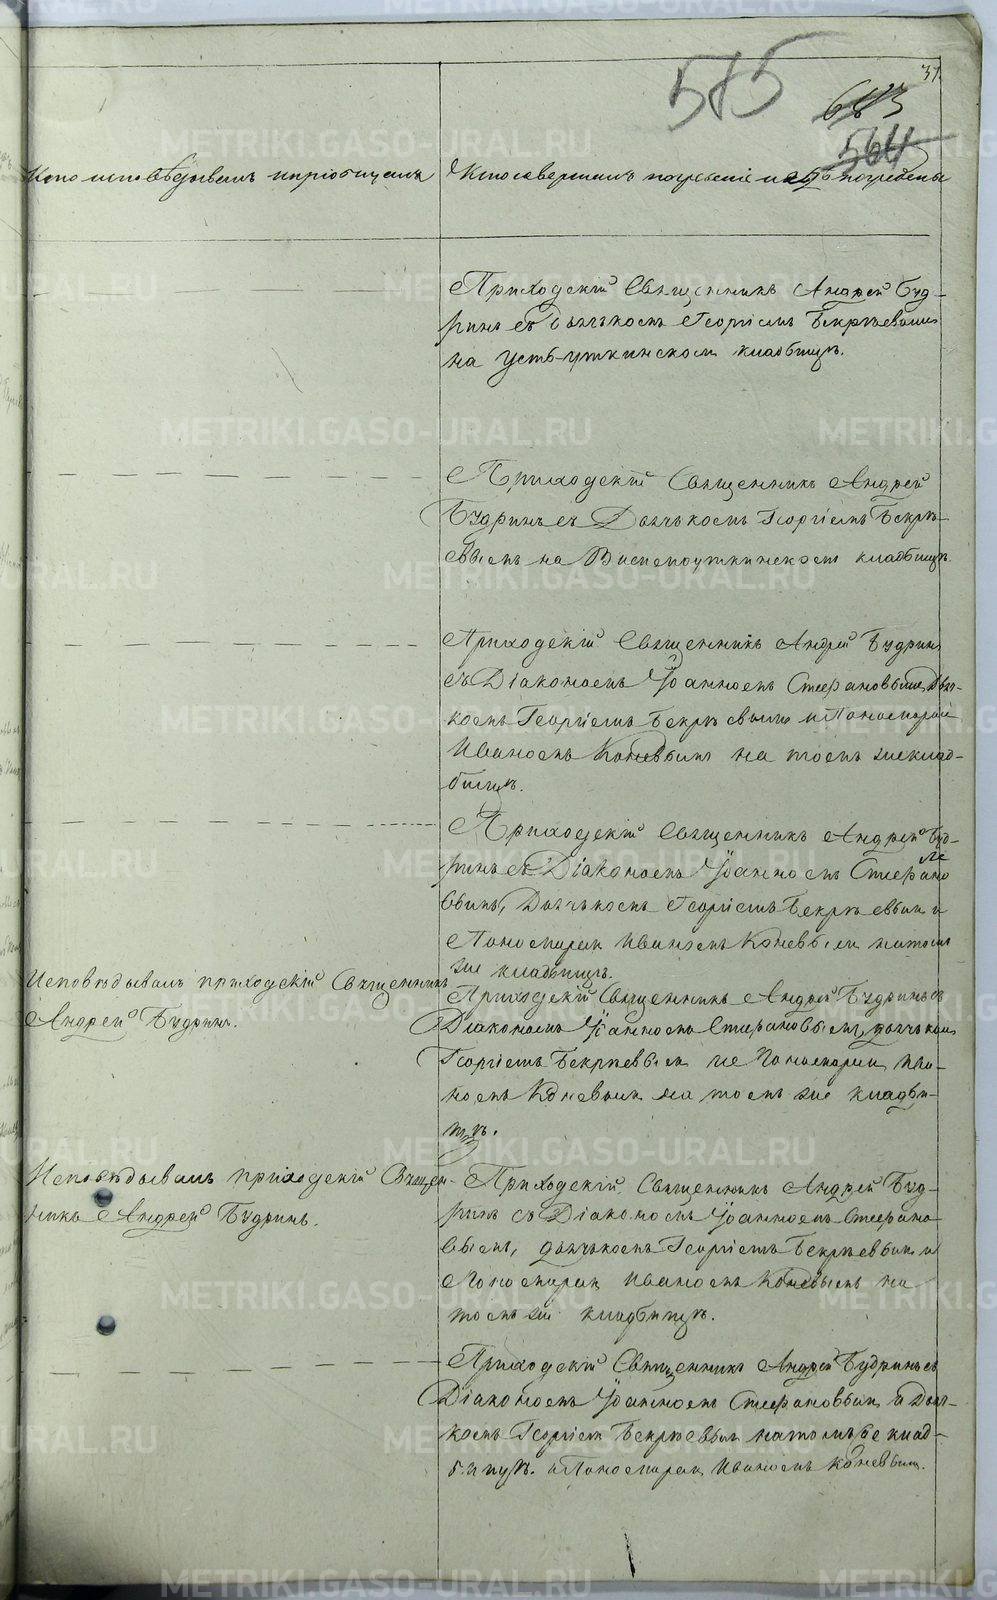 37.
515
683
564
Кто исповѣдывалъ и пріобщалъ
Кто совершалъ погребеніе и гдѣ погребены
Приходскій Священникъ Андрей Буд-
ринъ съ Дьячкомъ Георгіемъ Бекрѣевымъ
на Усть-Уткинскомъ кладбищѣ.
Приходскій Священникъ Андрей
Будринъ съ Дьячкомъ Георгіемъ Бекрѣ-
евымъ на Висимоуткинскомъ кладбищѣ.
Приходскій Священникъ Андрей Будринъ
съ Діакономъ Іоанномъ Стефановымъ, Дьяч-
комъ Георгіемъ Бекрѣевымъ и Пономаремъ
Иваномъ Коневымъ на томъ же клад-
бищѣ.
Приходскій Священникъ Андрей Буд-
ринъ съ Діакономъ Іоанномъ Стефано
вымъ, Дьячкомъ Георгіемъ Бекрѣевымъ и
Пономаремъ Иваномъ Коневымъ на томъ
же кладбищѣ.
Исповѣдывалъ приходскій Священникъ
Андрей Будринъ.
Приходскій Священникъ Андрей Будринъ съ
Діакономъ Іоанномъ Стефановымъ, дьячкомъ
Георгіемъ Бекрѣевымъ и Пономаремъ Ива-
номъ Коневымъ на томъ же кладби-
щѣ.
Исповѣдывалъ приходскій Священ-
никъ Андрей Будринъ.
Приходскій Священникъ Андрей Буд-
ринъ съ Діакономъ Іоанномъ Стефано
вымъ, дьячкомъ Георгіемъ Бекрѣевымъ и
Пономаремъ Иваномъ Коневымъ на
томъ же кладбищѣ.
Приходскій Священникъ Андрей Будринъ съ
Діакономъ Іоанномъ Стефановымъ и Дьяч-
комъ Георгіем Бекрѣевым на томъ же клад-
бищѣ. и Пономаремъ Иваномъ Коневымъ.
METRIKI.GASO-URAL.RU